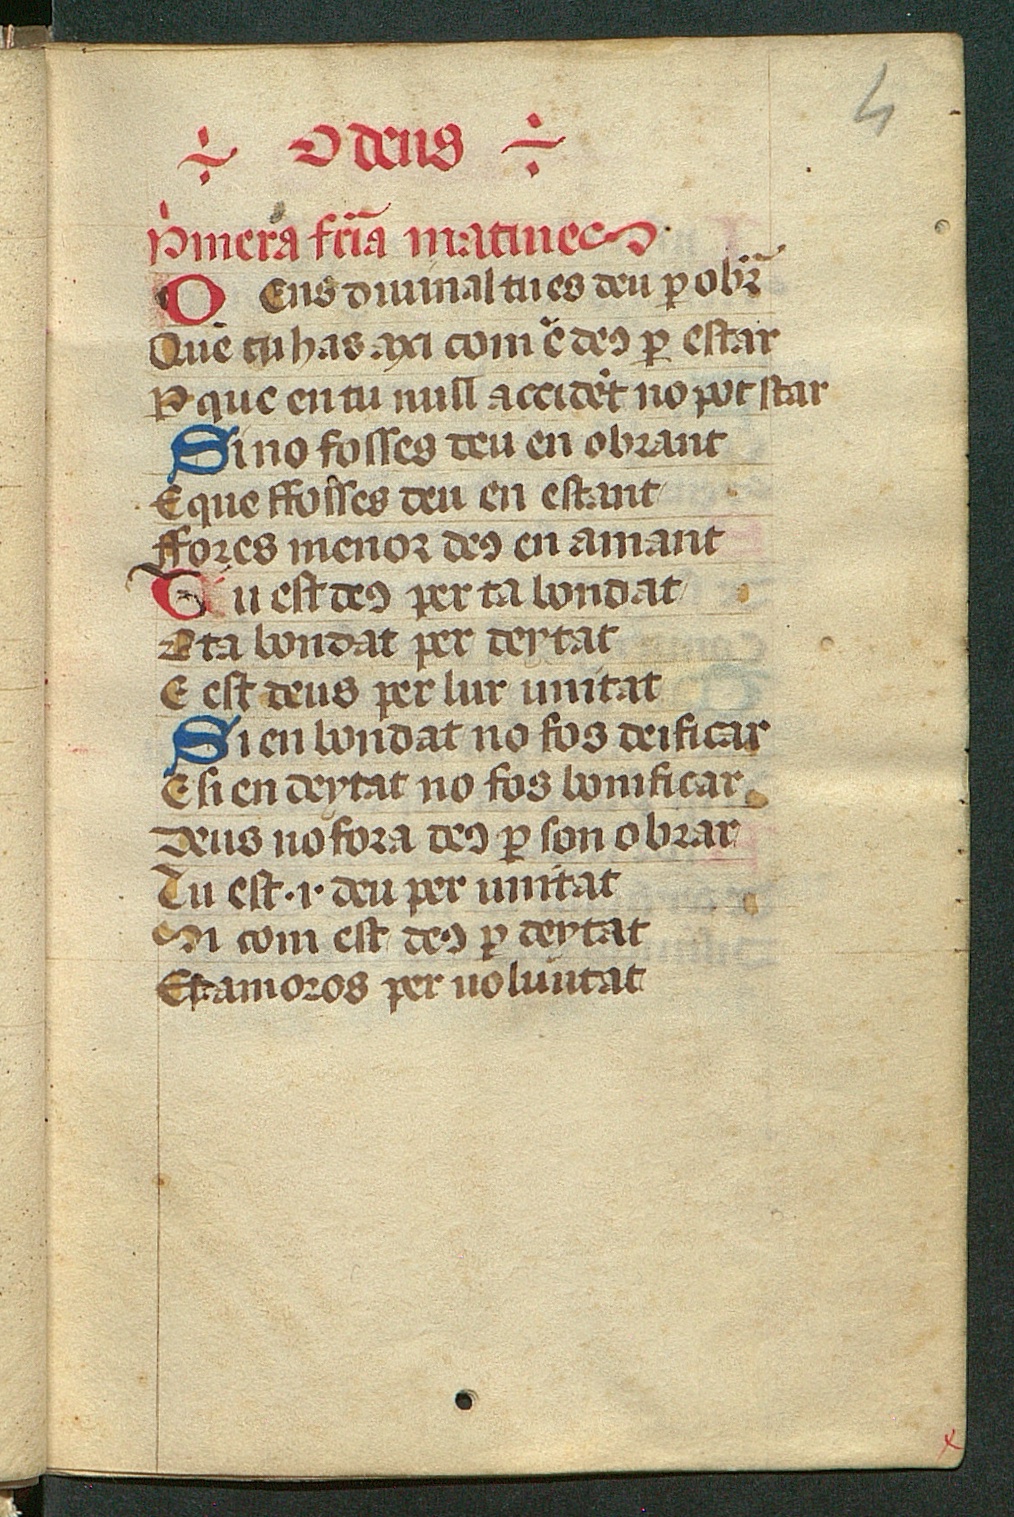 4
÷ O deus ÷
Pͥmera fr̃ia matines
DEus diuinal tu es deu ꝑ obr̃
Que tu has axi com ẽ deꝰ ꝑ estar
Per que en tu null accidẽt no pot star
Si no fosses deu en obrant
E que ffosses deu en estant
ffores menor deꝰ en amant
Tu est deꝰ per ta bondat
E ta bondat per deytat
E est deus per lur unitat
Si en bondat no fos deificar
E si en deytat no fos bonificar
Deus no fora deꝰ ꝑ son obrar
Tu est .i. deu per unitat
Si com est deꝰ ꝑ deytat
Est amoros per uoluntat